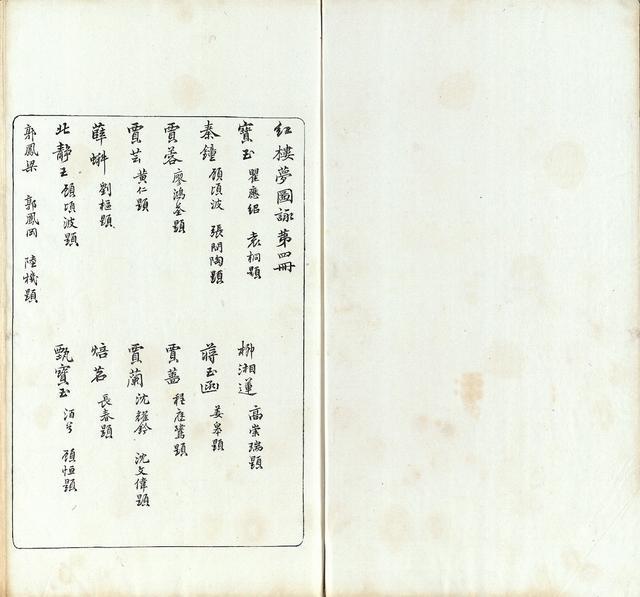 紅樓夢圖詠第四冊
寶玉 瞿應紹 袁桐題
柳湘蓮 高崇瑞題
秦鐘 顧頃波 張問陶題
蔣玉函 姜皋題
賈蓉 廖鴻荃題
賈薔 程庭鷺題
賈芸 黃仁題
賈蘭 沈耀鈐 沈文偉題
薛蝌 劉樞題
焙茗 長春題
北靜王 顧頃波題
甄寶玉 顧恒題
郭鳳梁 郭鳳岡 陸璣題